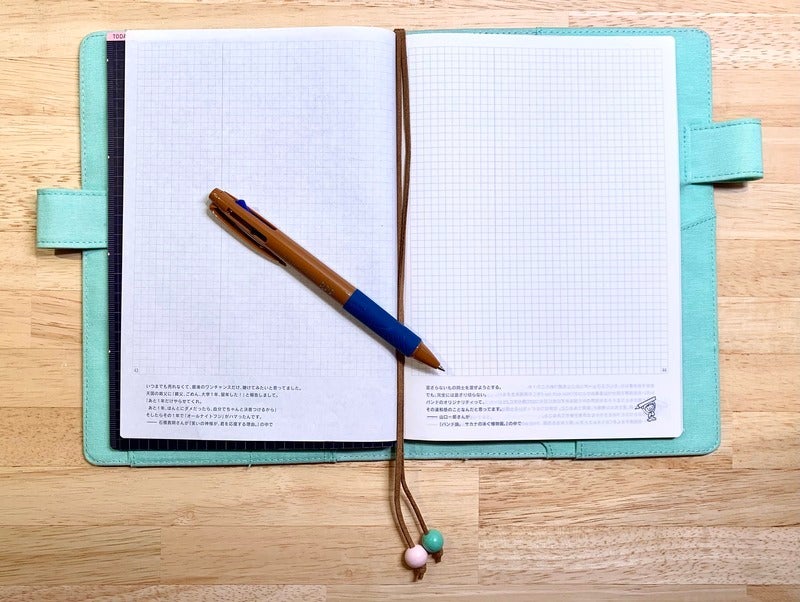 TODA
いつまでも売れなくて、最後のワンチャンスだけ、賭けてみたいと思ってました。
天国の親父に「親父、ごめん、大学1年、留年した!」と報告しまして。
「あと1年だけやらせてくれ。
あと1年、ほんとにダメだったら、自分でちゃんと決着つけるから」
そしたらその1年で『オールナイトフジ』がハマったんです。
—— 石橋貴明さんが『笑いの神様が、君を応援する理由。』の中で
混ざらないもの同士を混ぜようとする。
でも、完全には混ざり切らない。
バンドのオリジナリティって、
その違和感のことなんだと思ってます。
—— 山口一郎さんが
『バンド論。サカナの泳ぐ植物園。』の中で